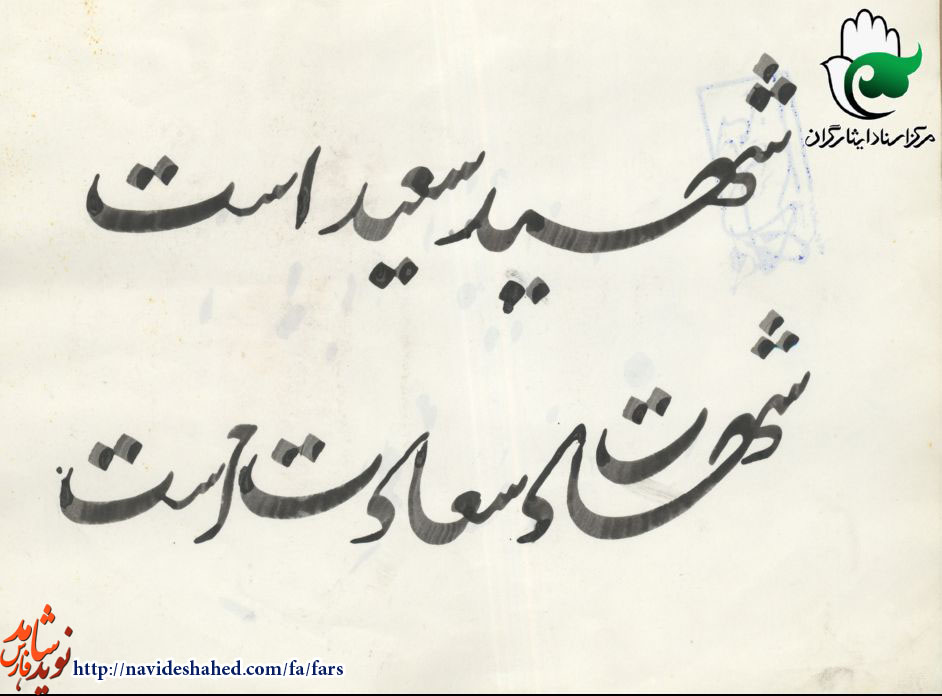 مرکز اسناد ایثارگران
شهید سعید است
شهادت سعادت است
نوید شاهد
فارس
http://navideshahed.com/fa/fars